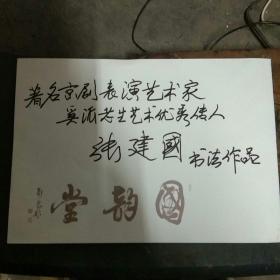 著名京剧表演艺术家
奚派老生艺术优秀传人
张建國 书法作品
国韵堂